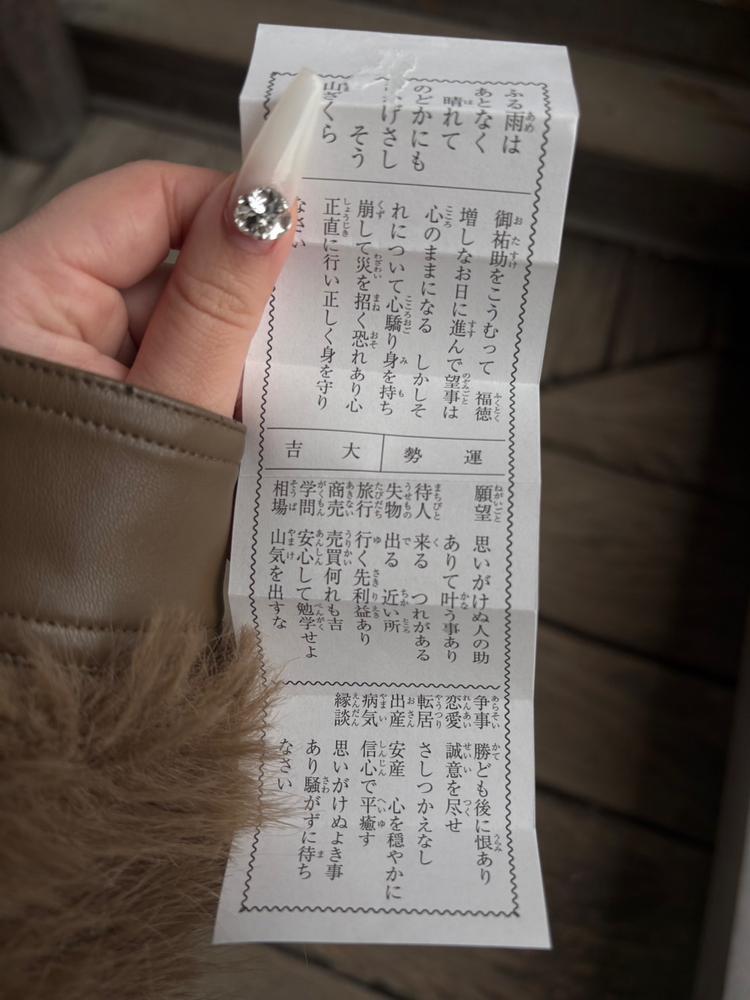 ふる雨は
あとなく
晴れて
のどかにも
げさし
そう
山ざくら
御祐助をこうむって 福徳
増しなお日に進んで望事は
心のままになる しかしそ
れについて心驕り身を持ち
崩して災を招く恐れあり心
正直に行い正しく身を守り
なさい
運勢 大吉
願望 思いがけぬ人の助
ありて叶う事あり
待人 来る つれがある
失物 出る 近い所
旅行 行く先利益あり
商売 売買何れも吉
学問 安心して勉学せよ
相場 山気を出すな
争事 勝ども後に恨あり
恋愛 誠意を尽せ
転居 さしつかえなし
出産 安産 心を穏やかに
病気 信心で平癒す
縁談 思いがけぬよき事
あり騒がずに待ち
なさい